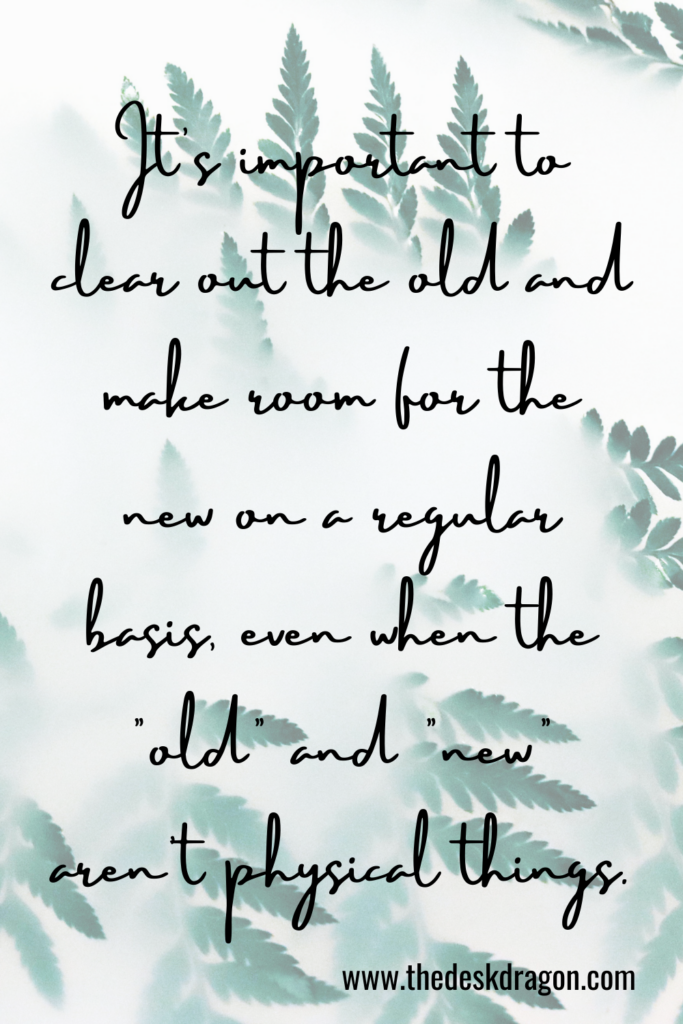 It's important to
clear out the old and
make room for the
new on a regular
basis, even when the
"old" and "new"
aren't physical things.
www.thedeskdragon.com